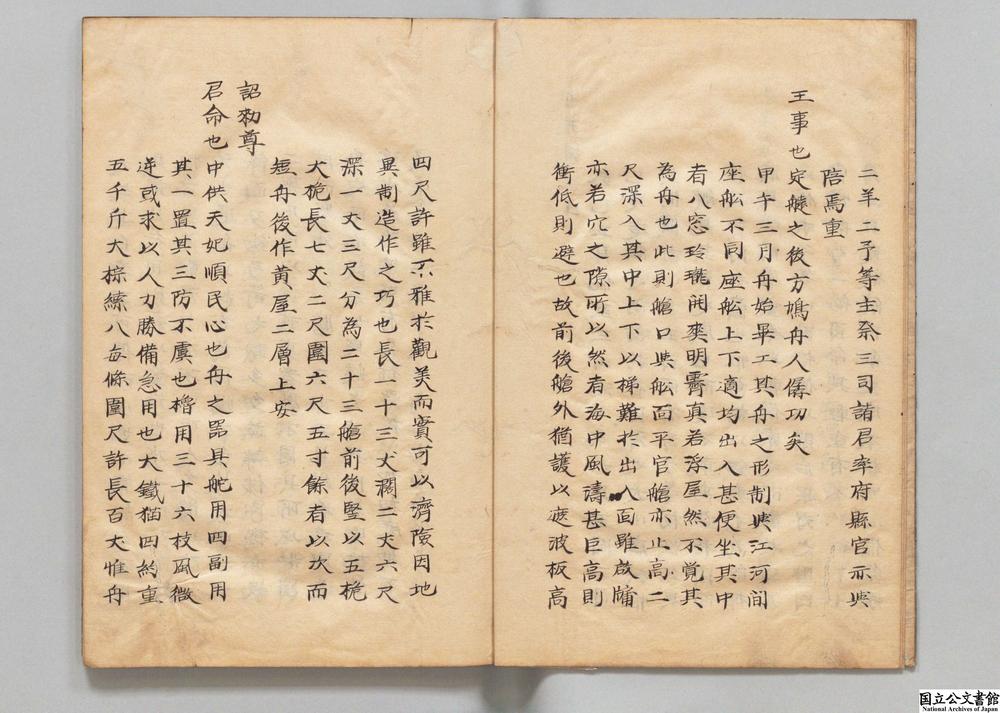 二羊二予等主祭三司諸君率府縣官亦與
陪焉重
王事也定艤之後方鳩舟人僝功矣
甲午三月舟始畢工其舟之形制與江河間
座舩不同座舩上下適均出入甚便坐其中
者八窓玲瓏開爽明霽真若浮屋然不覺其
為舟也此則艙口與舩面平官艙亦止高二
尺深入其中上下以梯難於出入面雖啟牖
亦若穴之隙所以然者海中風濤甚巨高則
衝低則避也故前後艙外猶護以遮波板高
四尺許雖不雅於觀美而實可以濟險因地
異制造作之巧也長一十三丈濶二丈六尺
深一丈三尺分為二十三艙前後竪以五桅
大桅長七丈二尺圍六尺五寸餘者以次而
短舟後作黃屋二層上安
詔勑尊
君命也中供天妃順民心也舟之噐具舵用四副用
其一置其三防不虞也櫓用三十六枝風微
逆或求以人力勝備急用也大鐵猫四約重
五千斤大棕綜八每條圍尺許長百丈惟舟
国立公文書館
National Archives of Japan